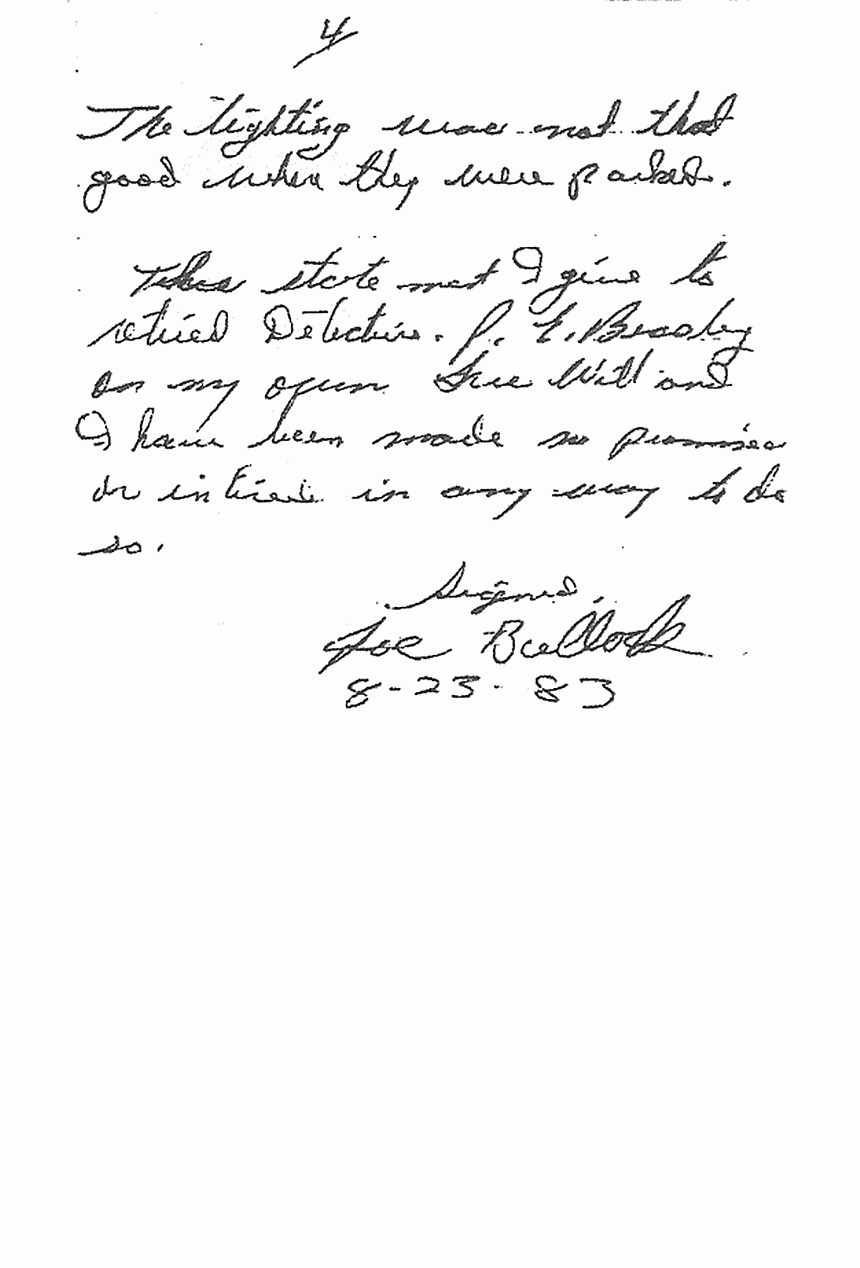 4
The lighting was not that
good when they were parked.
This state ment I give to
retired Detective. P. E. Beasley
on my open free Will and
I have been made no promises
or in tised in any way to do
so.
Signed,
Joe Bullock
8-23-83